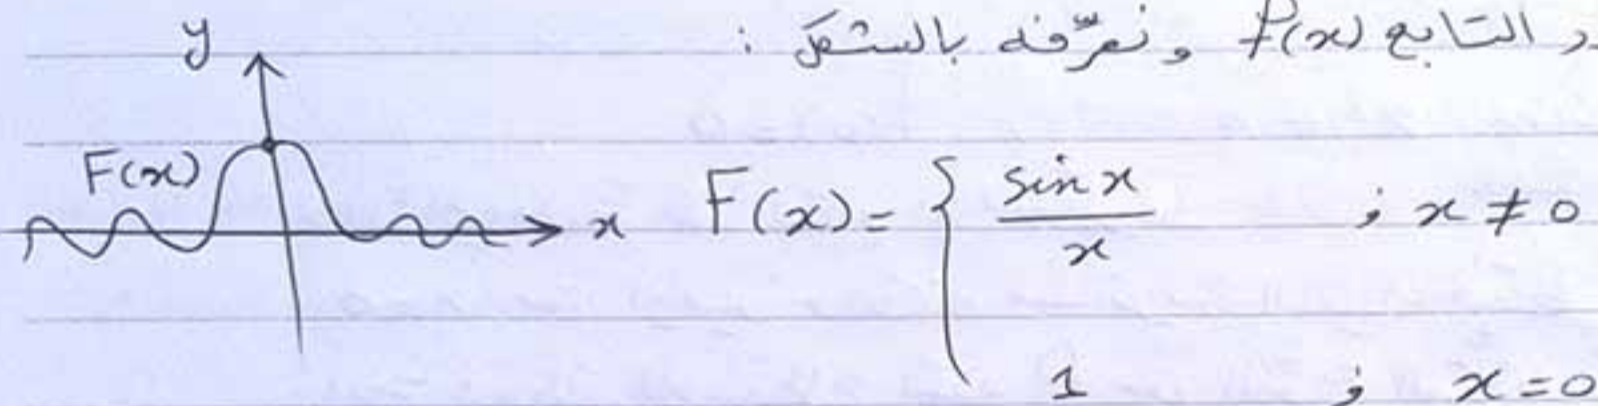 التابع f(x) ونعرّفه بالشكل :
y
F(x)
x
F(x) = { sin x / x ; x ≠ 0
1 ; x = 0